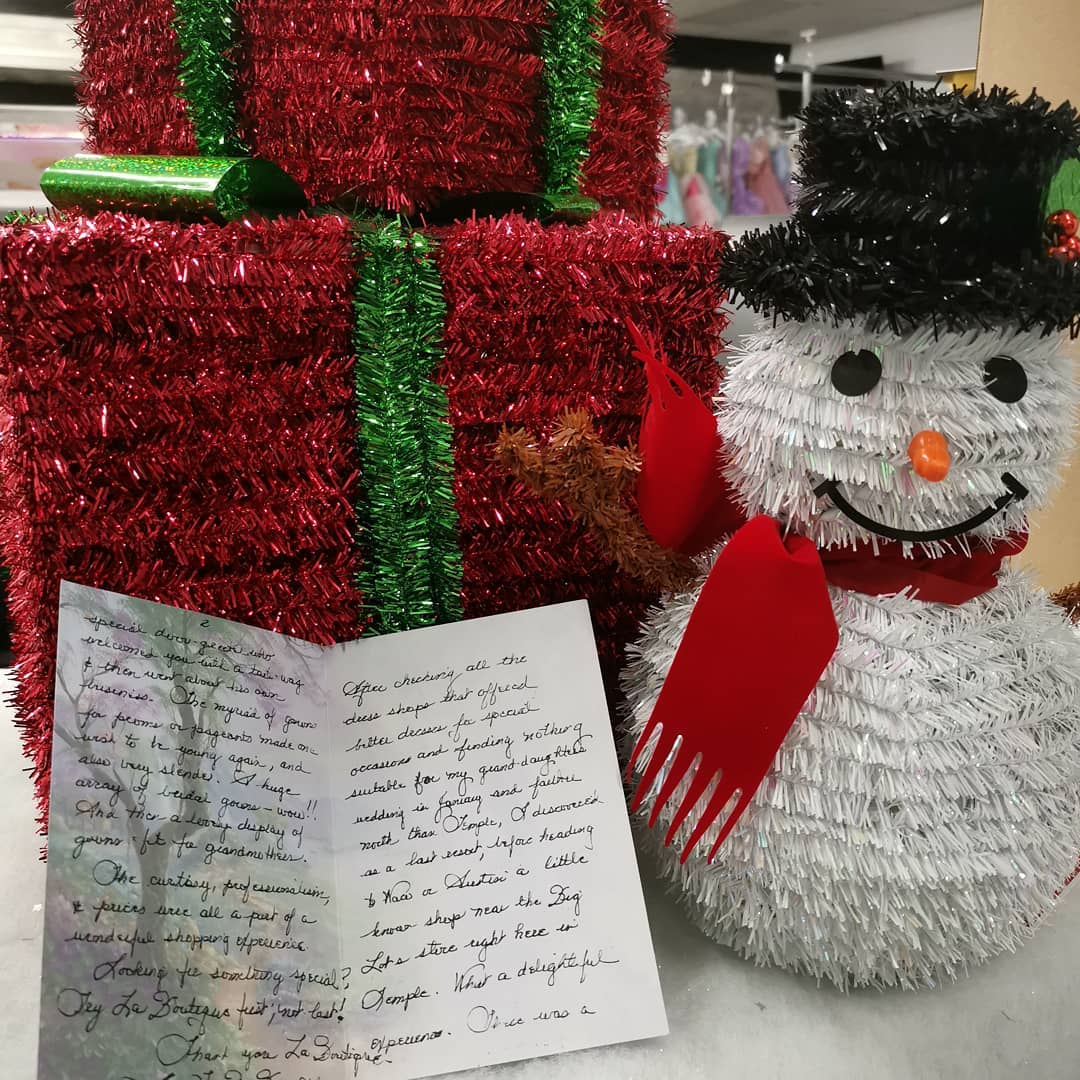 After checking all the
dress shops that offered
better dresses for special
occasions and finding nothing
suitable for my granddaughters
wedding in January and
north than Temple, I discovered
as a last resort, before heading
to Waco or Austin a little
known shop near the Big
Lots store right here in
Temple. What a delightful
experience. There was a
2
special door-greeter who
welcomed you with a tail-wag
& then went about his own
business. The myriad of gowns
for proms or pageants made me
wish to be young again, and
also very slender. A huge
array of bridal gowns - wow!!
And then a lovely display of
gowns - fit for grandmothers.
The curtisy, professionalism,
& prices were all a part of a
wonderful shopping experience.
Looking for something special?
Try La Boutique first, not last!
Thank you La Boutique